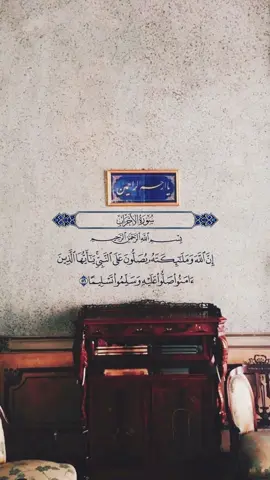 يا أرحم الراحمين
سورة الأحزاب
بسم الله الرحمن الرحيم
إِنَّ ٱللَّهَ وَمَلَٰٓئِكَتَهُۥ يُصَلُّونَ عَلَى ٱلنَّبِيِّ يَٰٓأَيُّهَا ٱلَّذِينَ
ءَامَنُوا۟ صَلُّوا۟ عَلَيْهِ وَسَلِّمُوا۟ تَسْلِيمًا